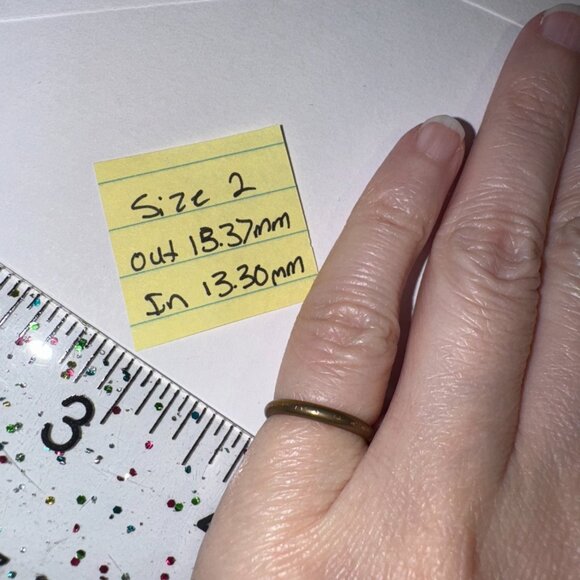 Size 2
out 15.37mm
In 13.30mm
3